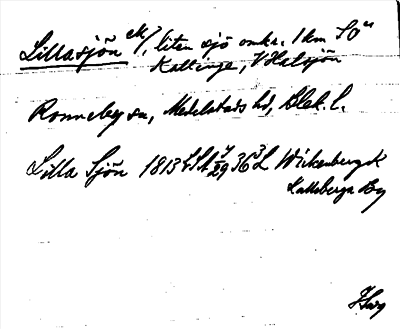 Lillasjön ek/, liten sjö omkr. 1 km SO
Kallinge, V Halsjön
Ronneby sn, Medelstads hd, Blek. l.
Lilla Sjön 1813 LSA 36 Wickenberg K
Kalleberga By